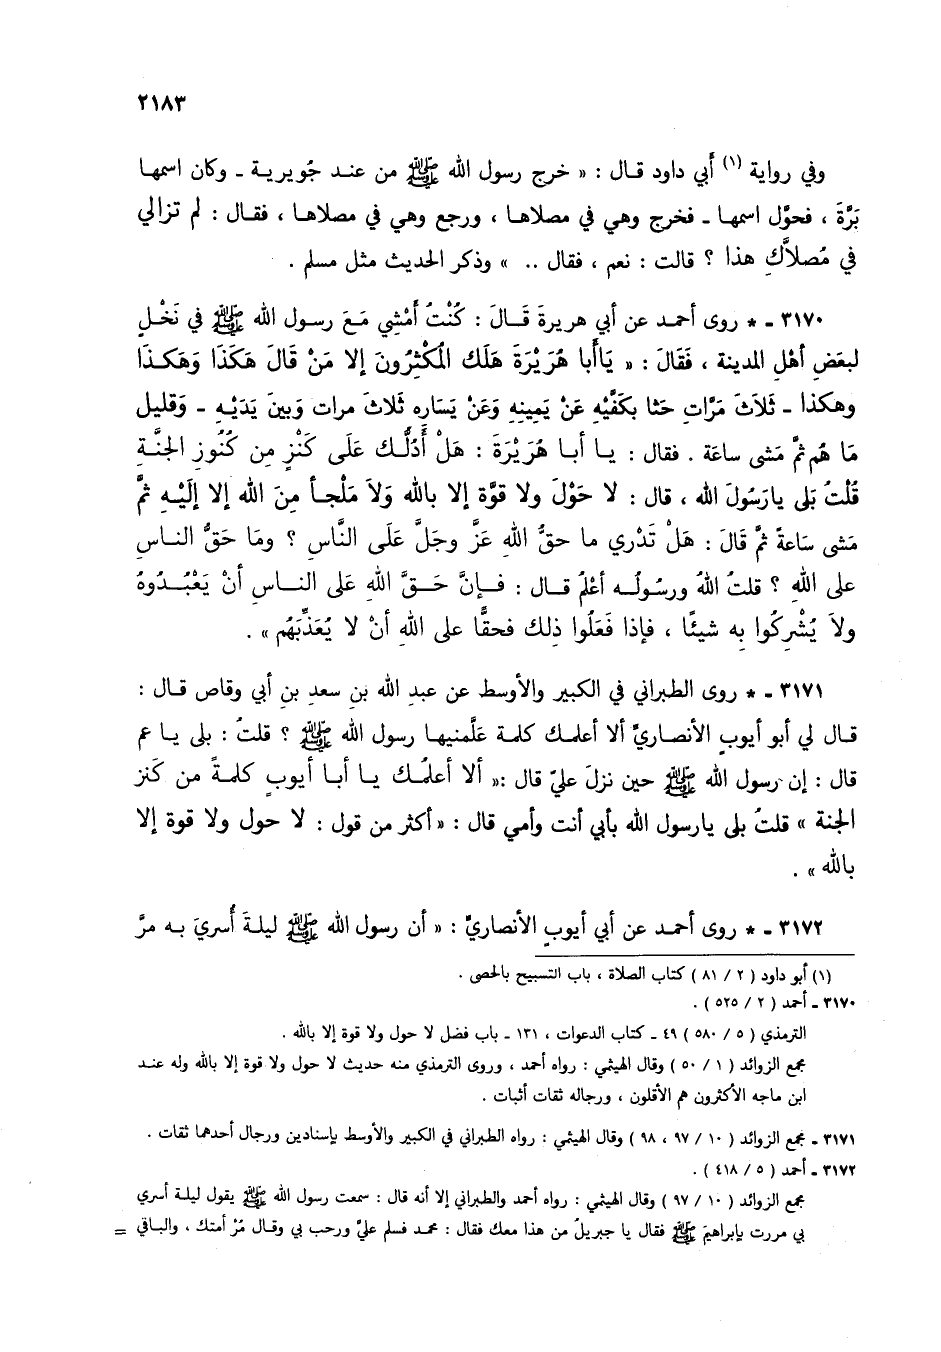 ٢١٨٣
وفي رواية (١) أبي داود قال : « خرج رسول الله ﷺ من عند جُويرية ـ وكان اسمها
بَرَّةَ ، فحوَّل اسمها ـ فخرج وهي في مصلاها ، ورجع وهي في مصلاها ، فقال : لم تزالي
في مُصلاَّكِ هذا ؟ قالت : نعم ، فقال .. » وذكر الحديث مثل مسلم .
٣١٧٠ ـ * روى أحمد عن أبي هريرةَ قَالَ : كُنْتُ أَمْشِي مَعَ رسول الله ﷺ في نَخْلٍ
لبعَضِ أهْلِ المدينة ، فَقَالَ : « يَاأَبا هُرَيْرَةَ هَلَك المُكْثِرُونَ إلا مَنْ قَالَ هَكَذَا وَهَكذَا
وهكذا ـ ثَلَاثَ مَرَّاتٍ حَثَا بِكَفَّيْهِ عَنْ يَمِينِهِ وَعَنْ يَسَارِه ثَلاثَ مرات وَبينَ يَدَيْهِ ـ وَقَليل
مَا هُم ثُمَّ مَشى ساعَة . فقال : يا أبا هُرَيْرَةَ : هَلْ أَدُلُّكَ عَلَى كَنْزٍ مِن كُنُوزِ الجنَّةِ
قُلْتُ بَلى يارَسُولَ الله ، قال : لا حَوْلَ ولا قوَّة إلا بالله وَلاَ مَلْجأ مِنَ الله إلا إلَيْهِ ثمَّ
مَشى سَاعةً ثمَّ قَالَ : هَلْ تَدْرِي ما حقُّ اللهِ عَزَّ وجَلَّ عَلَى النَّاسِ ؟ ومَا حَقُّ الناسِ
على اللهِ ؟ قلتُ اللهُ ورسُولُه أعْلمُ قال : فإنَّ حَقَّ اللهِ عَلى الناسِ أنْ يَعْبُدُوهُ
ولاَ يُشْرِكُوا بِه شيئًا ، فإذا فَعَلُوا ذلك فحقًّا على اللهِ أنْ لا يُعَذِّبَهُم » .
٣١٧١ ـ * روى الطبراني في الكبير والأوسط عن عبدِ الله بنِ سعدِ بنِ أبي وقاص قال :
قال لي أبو أيوبِ الأنصاريَّ ألا أعلمك كلمة علَّمنيها رسول الله ﷺ ؟ قلتُ : بلى يا عم
قال : إن رسول الله ﷺ حين نزلَ عليّ قال :« ألا أعلمُك يا أبا أيوبِ كلمةً من كَنز
الجنة » قلتُ بلى يارسول الله بأبي أنت وأمي قال : « أكثر من قول : لا حول ولا قوة إلا
بالله » .
٣١٧٢ ـ * روى أحمد عن أبي أيوبِ الأنصاريِّ : « أن رسول الله ﷺ ليلةَ أُسريَ به مرَّ
(١) أبو داود ( ٢ / ٨١ ) كتاب الصلاة ، باب التسبيح بالحصى .
٣١٧٠ ـ أحمد ( ٢ / ٥٢٥ ) .
الترمذي ( ٥ / ٥٨٠ ) ٤٩ ـ كتاب الدعوات ، ١٣١ ـ باب فضل لا حول ولا قوة إلا بالله .
مجمع الزوائد ( ١ / ٥٠ ) وقال الهيثمي : رواه أحمد ، وروى الترمذي منه حديث لا حول ولا قوة إلا بالله وله عند
ابن ماجه الأكثرون هم الأقلون ، ورجاله ثقات أثبات .
٣١٧١ ـ مجمع الزوائد ( ١٠ / ٩٧ ، ٩٨ ) وقال الهيثمي : رواه الطبراني في الكبير والأوسط بإسنادين ورجال أحدهما ثقات .
٣١٧٢ ـ أحمد ( ٥ / ٤١٨ ) .
مجمع الزوائد ( ١٠ / ٩٧ ) وقال الهيثمي : رواه أحمد والطبراني إلا أنه قال : سمعت رسول الله ﷺ يقول ليلة أسري
بي مررت بإبراهيمَ ﷺ فقال يا جبريلُ من هذا معك فقال : محمد فسلم عليَّ ورحب بي وقال مُرْ أمتك ، والباقي =